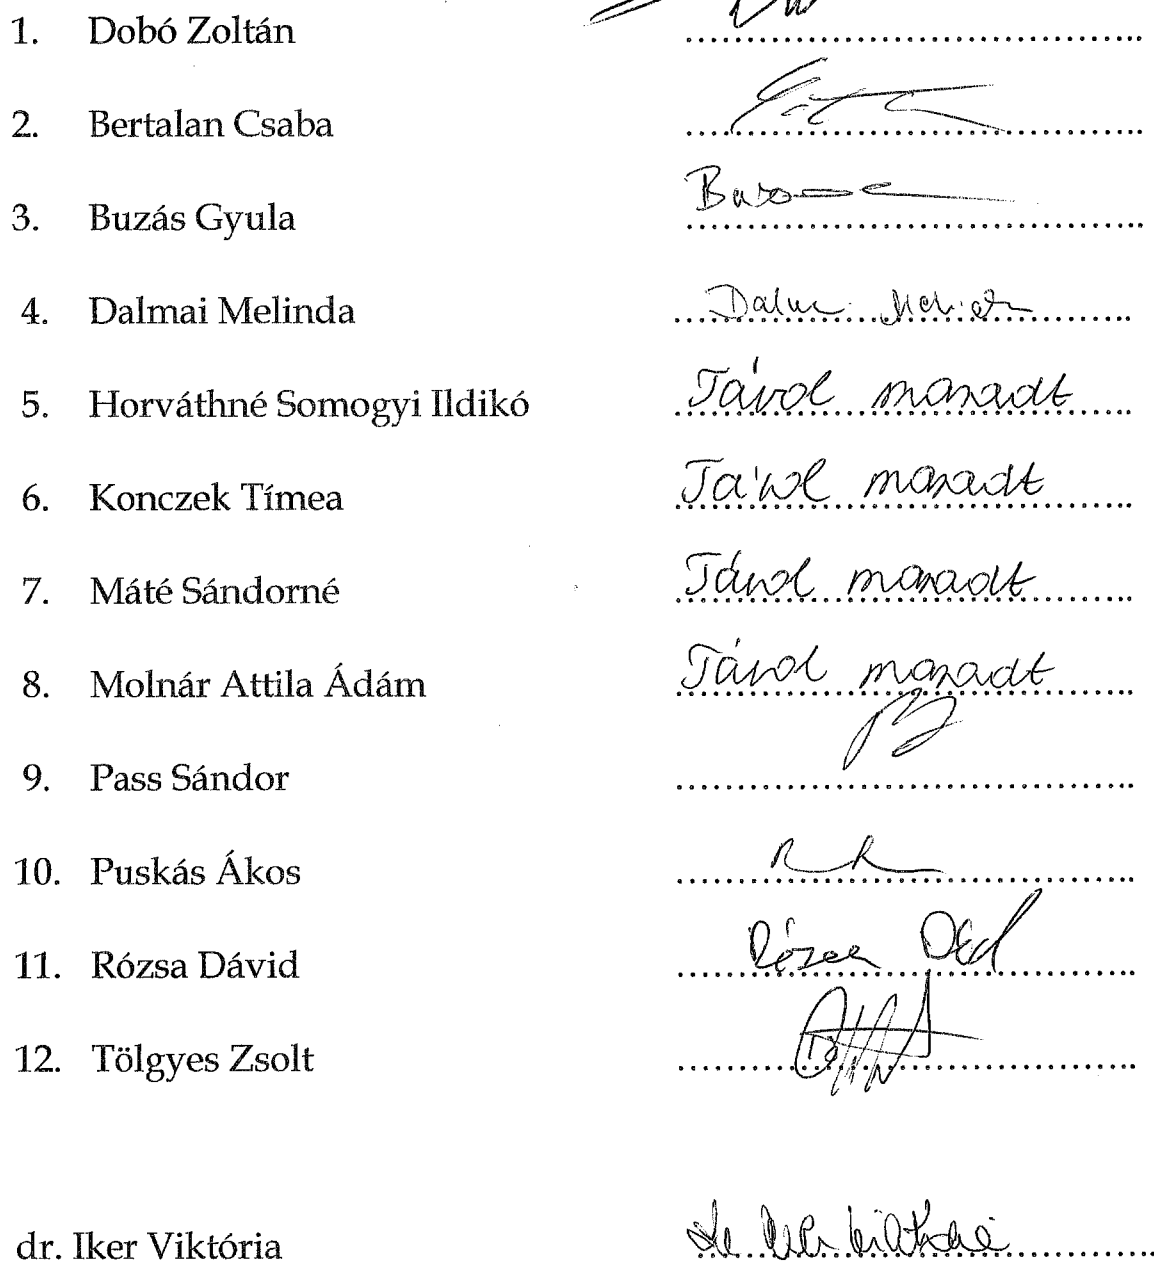 1. Dobó Zoltán ........................................
2. Bertalan Csaba ........................................
3. Buzás Gyula ........................................
4. Dalmai Melinda ........................................
5. Horváthné Somogyi Ildikó Távol maradt
6. Konczek Tímea Távol maradt
7. Máté Sándorné Távol maradt
8. Molnár Attila Ádám Távol maradt
9. Pass Sándor ........................................
10. Puskás Ákos ........................................
11. Rózsa Dávid Rózsa Dávid
12. Tölgyes Zsolt ........................................
dr. Iker Viktória ........................................